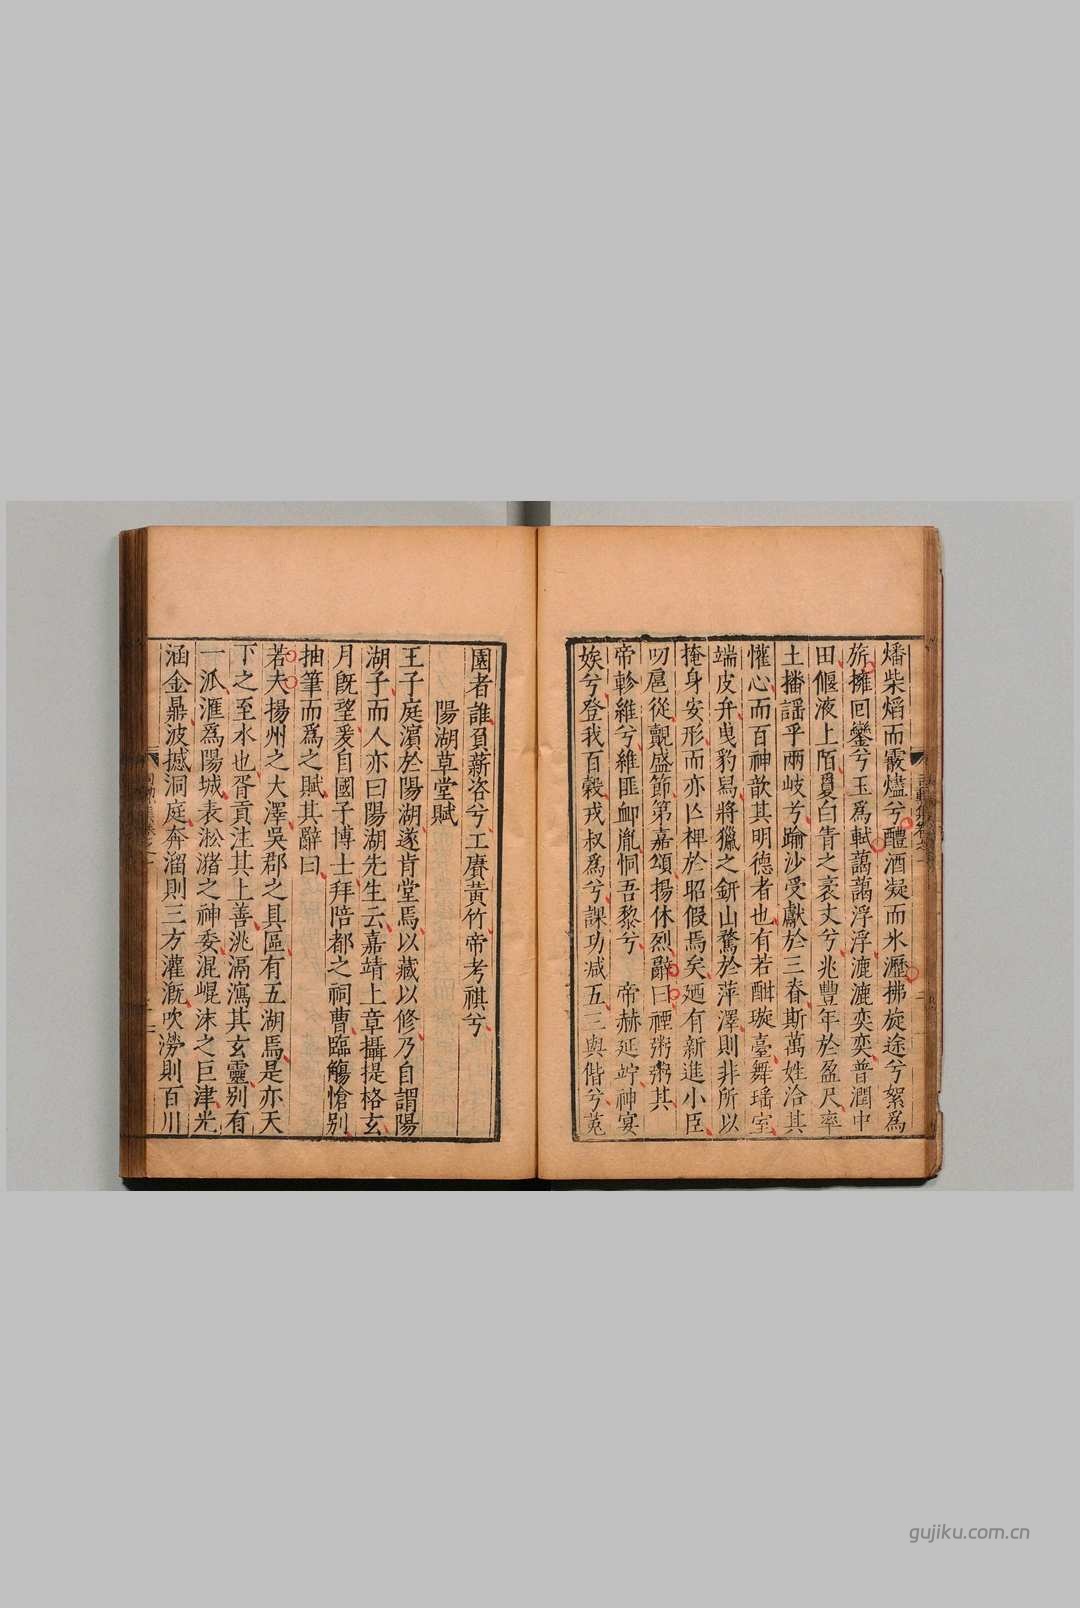 燔柴熖而霰燼兮醴酒凝而氷瀝拂旋途兮絮爲
旂擁回鑾兮玉爲軾藹藹浮浮漉漉奕奕普潤中
田偃液上陌曼曰青之袤丈兮兆豐年於盈尺率
土播謡乎兩岐兮踰沙受獻於三眷斯萬姓洽其
懽心而百神歆其明德者也有若酣璇臺舞瑶室
端皮弁曳豹舄將獵之鈃山驁於萍澤則非所以
掩身安形而亦亾裨於昭假焉矣廼有新進小臣
叨扈從覿盛節第嘉頌揚休烈辭曰禋粥粥其
帝軫維兮維匪卹胤恫吾黎兮帝赫延竚神宴
娭兮登我百穀戎叔爲兮課功减五三與偕兮菟
園者誰負薪咨兮工賡黃竹帝考祺兮
陽湖草堂賦
王子庭濵於陽湖遂肯堂焉以藏以修乃自謂陽
湖子而人亦曰陽湖先生云嘉靖上章攝提格玄
月旣望爰自國子博士拜陪都之祠曹臨觴愴別
抽筆而爲之賦其辭曰
若夫揚州之大澤吳郡之具區有五湖焉是亦天
下之至水也胥貢注其上善洮滆瀉其玄靈别有
一泒滙爲陽城表淞瀦之神委混崐沫之巨津光
涵金鼎波撼洞庭奔溜則三方灌漑吹澇則百川
gujiku.com.cn